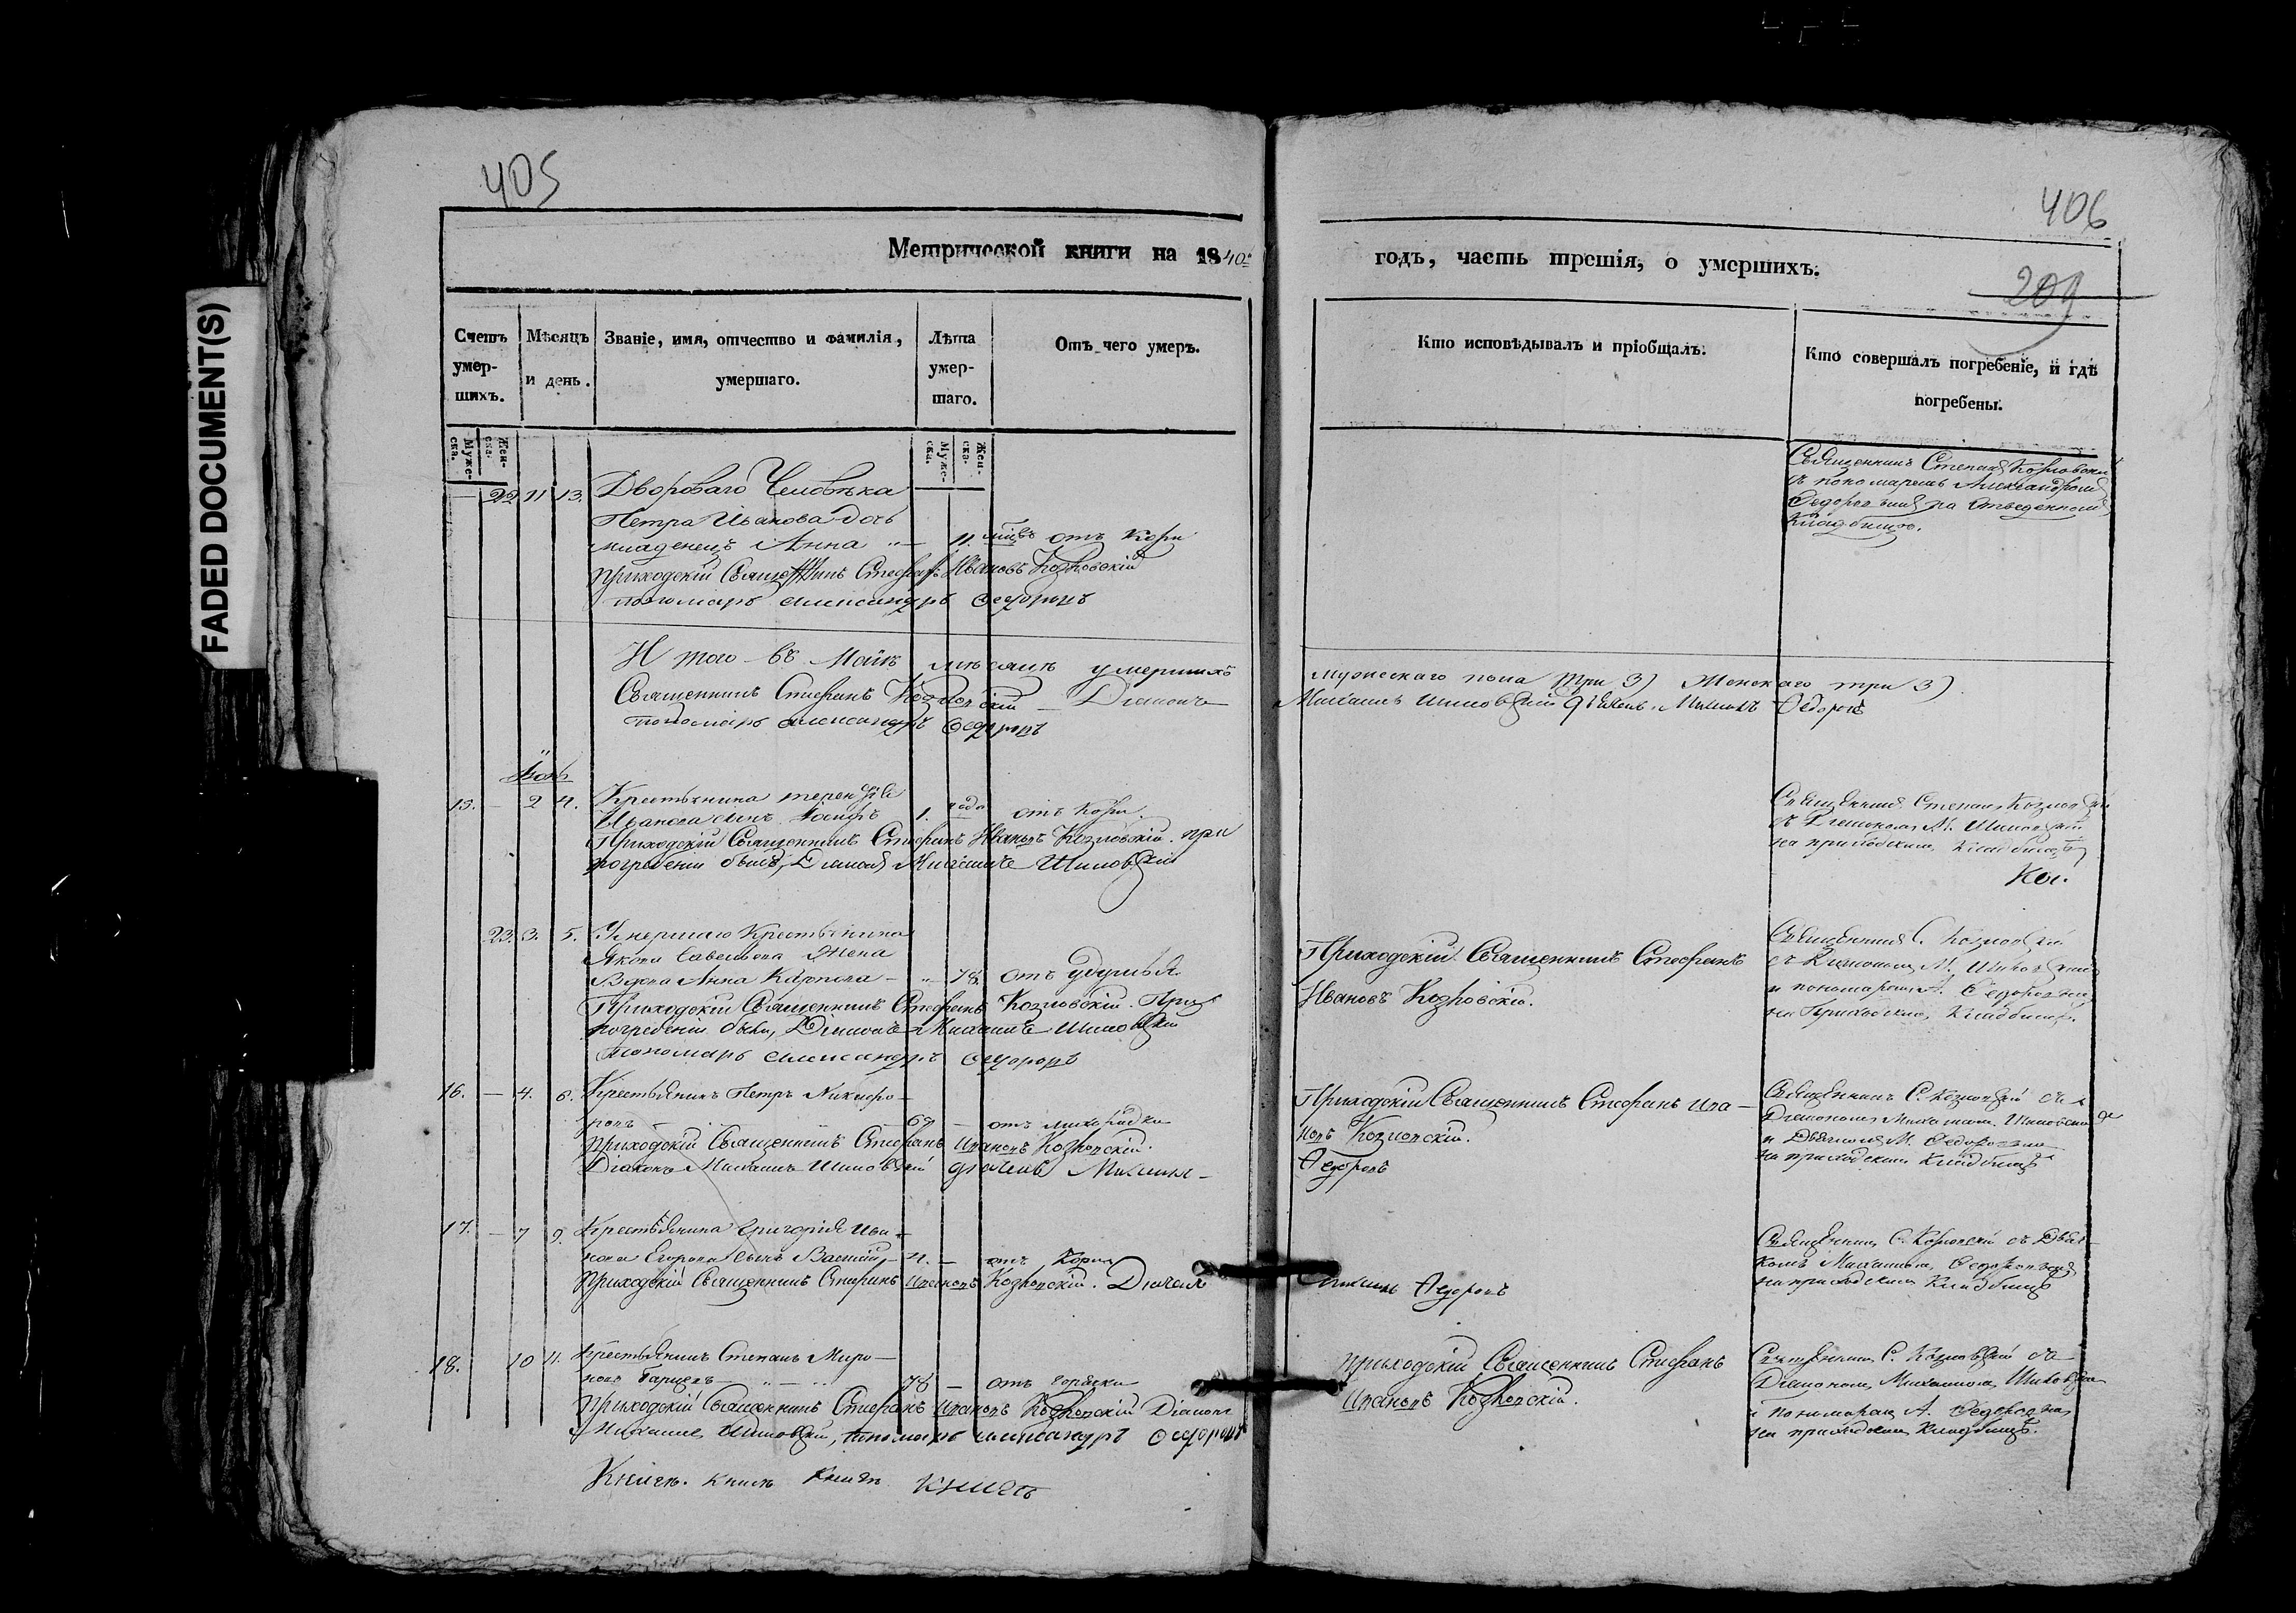 FADED DOCUMENT(S)
405
Метрической книги на 1840й
Счетъ умер-шихъ.
Мѣсяцъ и день.
Званіе, имя, отчество и фамилія, умершаго.
Лѣта умер-шаго.
Отъ чего умеръ.
Муже-ска.
Жен-ска.
Муже-ска.
Жен-ска.
22 11 13. Двороваго Человѣка
Петра Иванова дочь
младенецъ Анна 11. мцвъ отъ Кори
Приходскій Священникъ Стефанъ Ивановъ Козловскій
пономарь Александръ Федоровъ
И того въ Маіѣ мѣсяцѣ умершихъ
Священникъ Стефанъ Козловскій Діаконъ
пономарь Александръ Федоровъ
15. — 2 4. Крестьянина
Иванова сынъ Іосифъ 1. года отъ Кори.
Приходскій Священникъ Стефанъ Ивановъ Козловскій. при
погребеніи былъ, Діаконъ Михаилъ Шиловскій
23. 3. 5. Умершаго Крестьянина
Якова Савельева Жена
Вдова Анна Карпова — 78. отъ удушья
Приходскій Священникъ Стефанъ Козловскій. При
погребеніи были, Діаконъ Михаилъ Шиловскій
Пономарь Александръ Федоровъ
16. — 4. 6. Крестьянинъ Петръ Никифо-
ровъ — отъ лихорадки
Приходскій Священникъ Стефанъ Ивановъ Козловскій.
Діаконъ Михаилъ Шиловскій дьячекъ Михаил-
17. — 7 9. Крестьянина Григорія Ива-
нова Егорова сынъ Василій — отъ Кори
Приходскій Священникъ Стефанъ Ивановъ Козловскій. Дьячекъ
18. 10 11. Крестьянинъ Степанъ Миро-
новъ 78 — отъ горячки
Приходскій Священникъ Стефанъ Ивановъ Козловскій Діаконъ
Михаилъ Шиловскій, пономарь Александръ Федоровъ
406
годъ, часть третія, о умершихъ.
209
Кто исповѣдывалъ и пріобщалъ.
Кто совершалъ погребеніе, и гдѣ погребены.
Священникъ Стефанъ Козловскій
съ пономаремъ Александромъ
Федоровымъ на Отведенномъ
Кладбищѣ.
мужескаго пола три 3) Женскаго три 3)
Михаилъ Шиловскій Федоровъ
Священникъ Стефанъ Козловскій
съ Діакономъ М. Шиловскимъ
на приходскомъ Кладбищѣ
Приходскій Священникъ Стефанъ
Ивановъ Козловскій.
Священникъ С. Козловскій
съ Діакономъ М. Шиловскимъ
и пономаремъ А. Федоровымъ
на Приходскомъ Кладбищѣ.
Приходскій Священникъ Стефанъ Ива-
новъ Козловскій.
Федоровъ
Священникъ С. Козловскій съ
Діакономъ Михаиломъ Шиловскимъ
и Дьячкомъ М. Федоровымъ
на приходскомъ Кладбищѣ
Федоровъ
Священникъ С. Козловскій съ Дьяч-
комъ Михаиломъ Федоровымъ
на приходскомъ Кладбищѣ
Приходскій Священникъ Стефанъ
Ивановъ Козловскій.
Священникъ С. Козловскій съ
Діакономъ Михаиломъ Шиловскимъ
и Пономаремъ А. Федоровымъ
на приходскомъ Кладбищѣ.